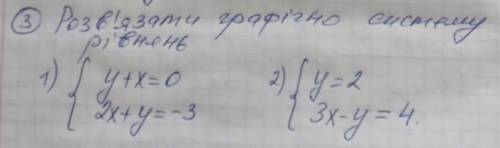 ③ Розв'язати графічно систему
рівнянь
1) { y+x=0 2) { y=2
2x+y=-3 3x-y=4.